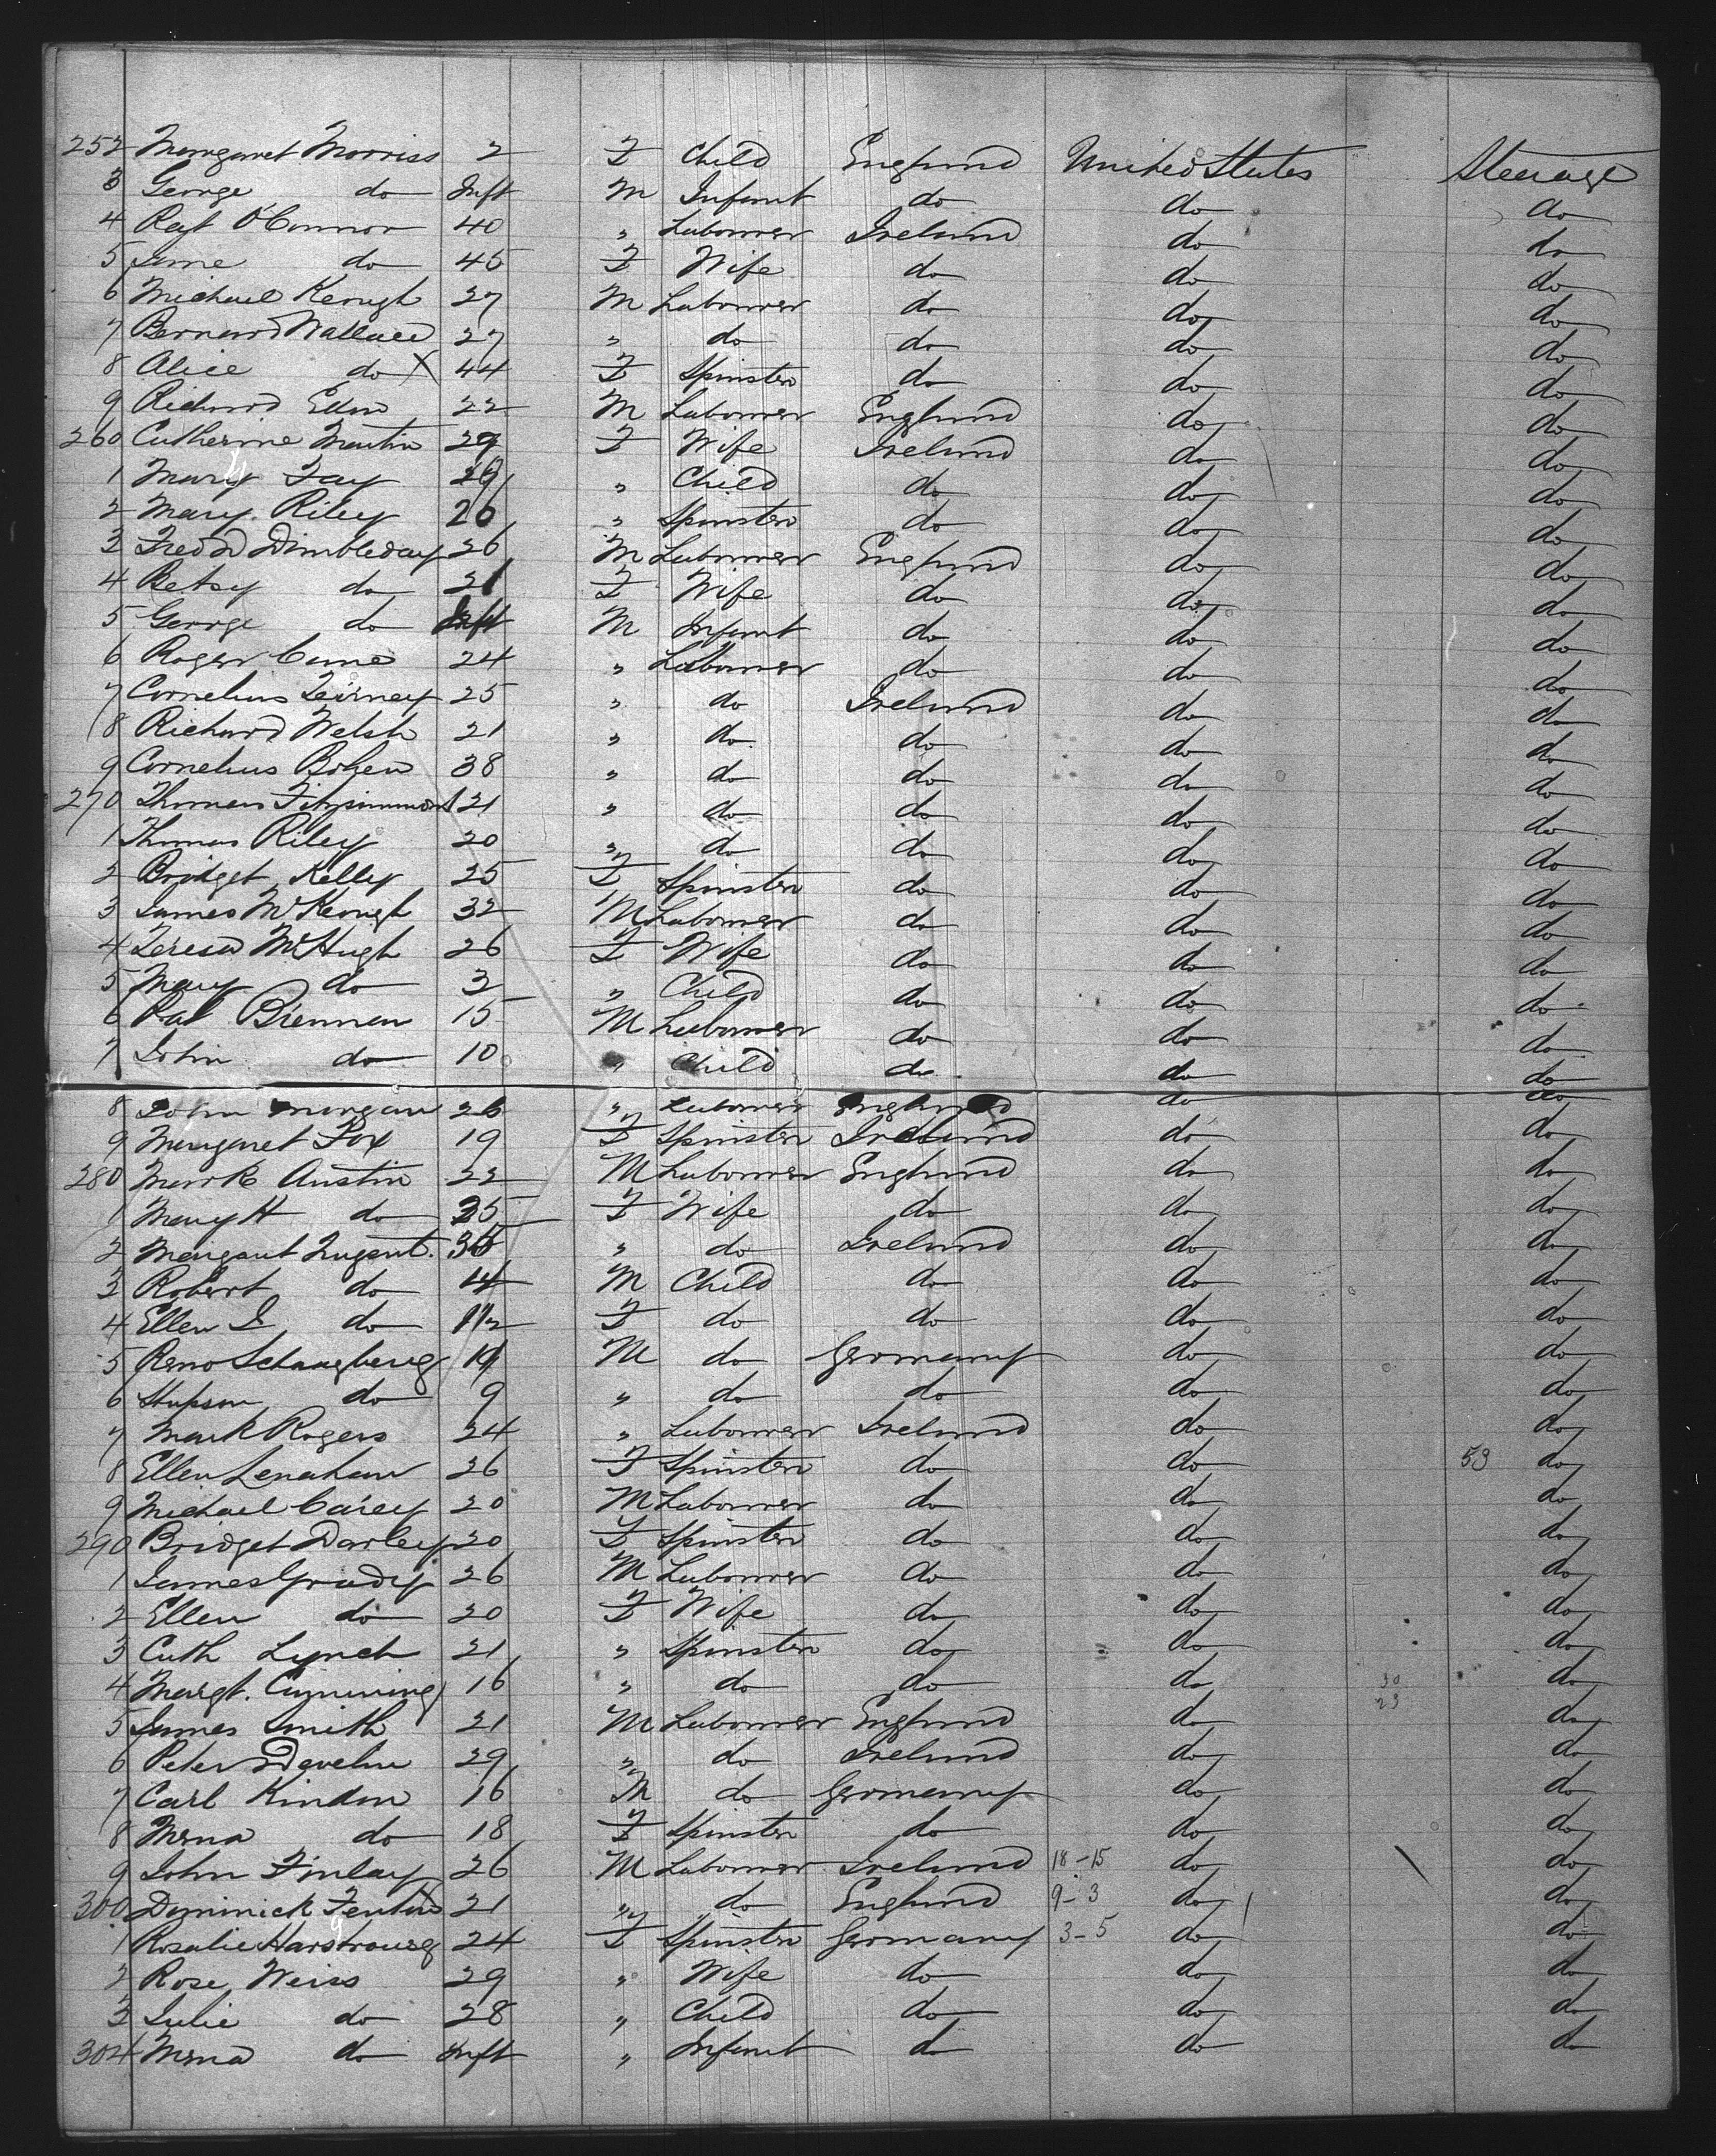 252 Margaret Morriss 2 F Child England United States Steerage
3 George do Inft M Infant do do do
4 Pat O'Connor 40 " Labourer Ireland do do
5 Jane do 45 F Wife do do do
6 Michael Keough 27 M Labourer do do do
7 Bernard Wallace 27 " do do do do
8 Alice do X 44 F Spinster do do do
9 Richard 22 M Labourer England do do
260 Catherine Martin 29 F Wife Ireland do do
1 Mary Fay " Child do do do
2 Mary Riley 26 " Spinster do do do
3 Fred Dimbleday 26 M Labourer England do do
4 Betsy do 21 F Wife do do do
5 George do Inft M Infant do do do
6 Roger Cane 24 " Labourer do do do
7 Cornelius Teirney 25 " do Ireland do do
8 Richard Welsh 21 " do do do do
9 Cornelius 38 " do do do do
270 Thomas Fitzsimmons 21 " do do do do
1 Thomas Riley 20 " do do do do
2 Bridget Kelly 25 F Spinster do do do
3 James McKeough 32 M Labourer do do do
4 Teresa McHugh 26 F Wife do do do
5 Mary do 3 " Child do do do
6 Pat Brennen 15 M Labourer do do do
7 John do 10 " Child do do do
8 John Morgan 26 " Labourer England do do
9 Margaret Fox 19 F Spinster Ireland do do
280 Mark Austin 22 M Labourer England do do
1 Mary H do 25 F Wife do do do
2 Margaret Nugent " do Ireland do do
3 Robert do 4 M Child do do do
4 Ellen J do F do do do do
5 Reno M do Germany do do
6 do 9 " do do do do
7 Mark Rogers 24 " Labourer Ireland do do
8 Ellen Lenahan 26 F Spinster do do 53 do
9 Michael Carey 20 M Labourer do do do
290 Bridget Darley 20 F Spinster do do do
1 James Grady 26 M Labourer do do do
2 Ellen do 20 F Wife do do do
3 Cath Lynch 21 " Spinster do do do
4 Margt. Cumming 16 " do do do 30 do
23
5 James Smith 21 M Labourer England do do
6 Peter Develin 29 " do Ireland do do
7 Carl Kindon 16 M do Germany do do
8 do 18 F Spinster do do do
9 John Finlay 26 M Labourer Ireland 18-15 do do
300 Dominick 21 " do England 9-3 do do
1 Rosalie 24 F Spinster Germany 3-5 do do
2 Rose Weiss 29 " Wife do do do
3 Julie do 28 " Child do do do
304 do Inft " Infant do do do